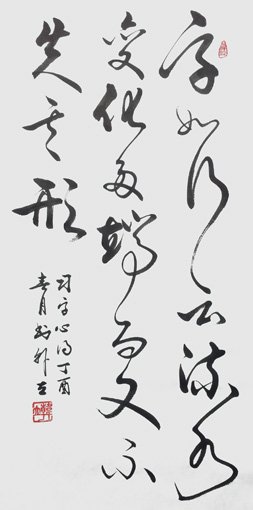 字如行云流水
变化多端而又不
失其形
习字心得丁酉
春月